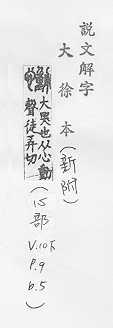 説文解字
大徐本(新附)
大哭也从心動
聲徒弄切(心部 V.10下 P.9 b.5)